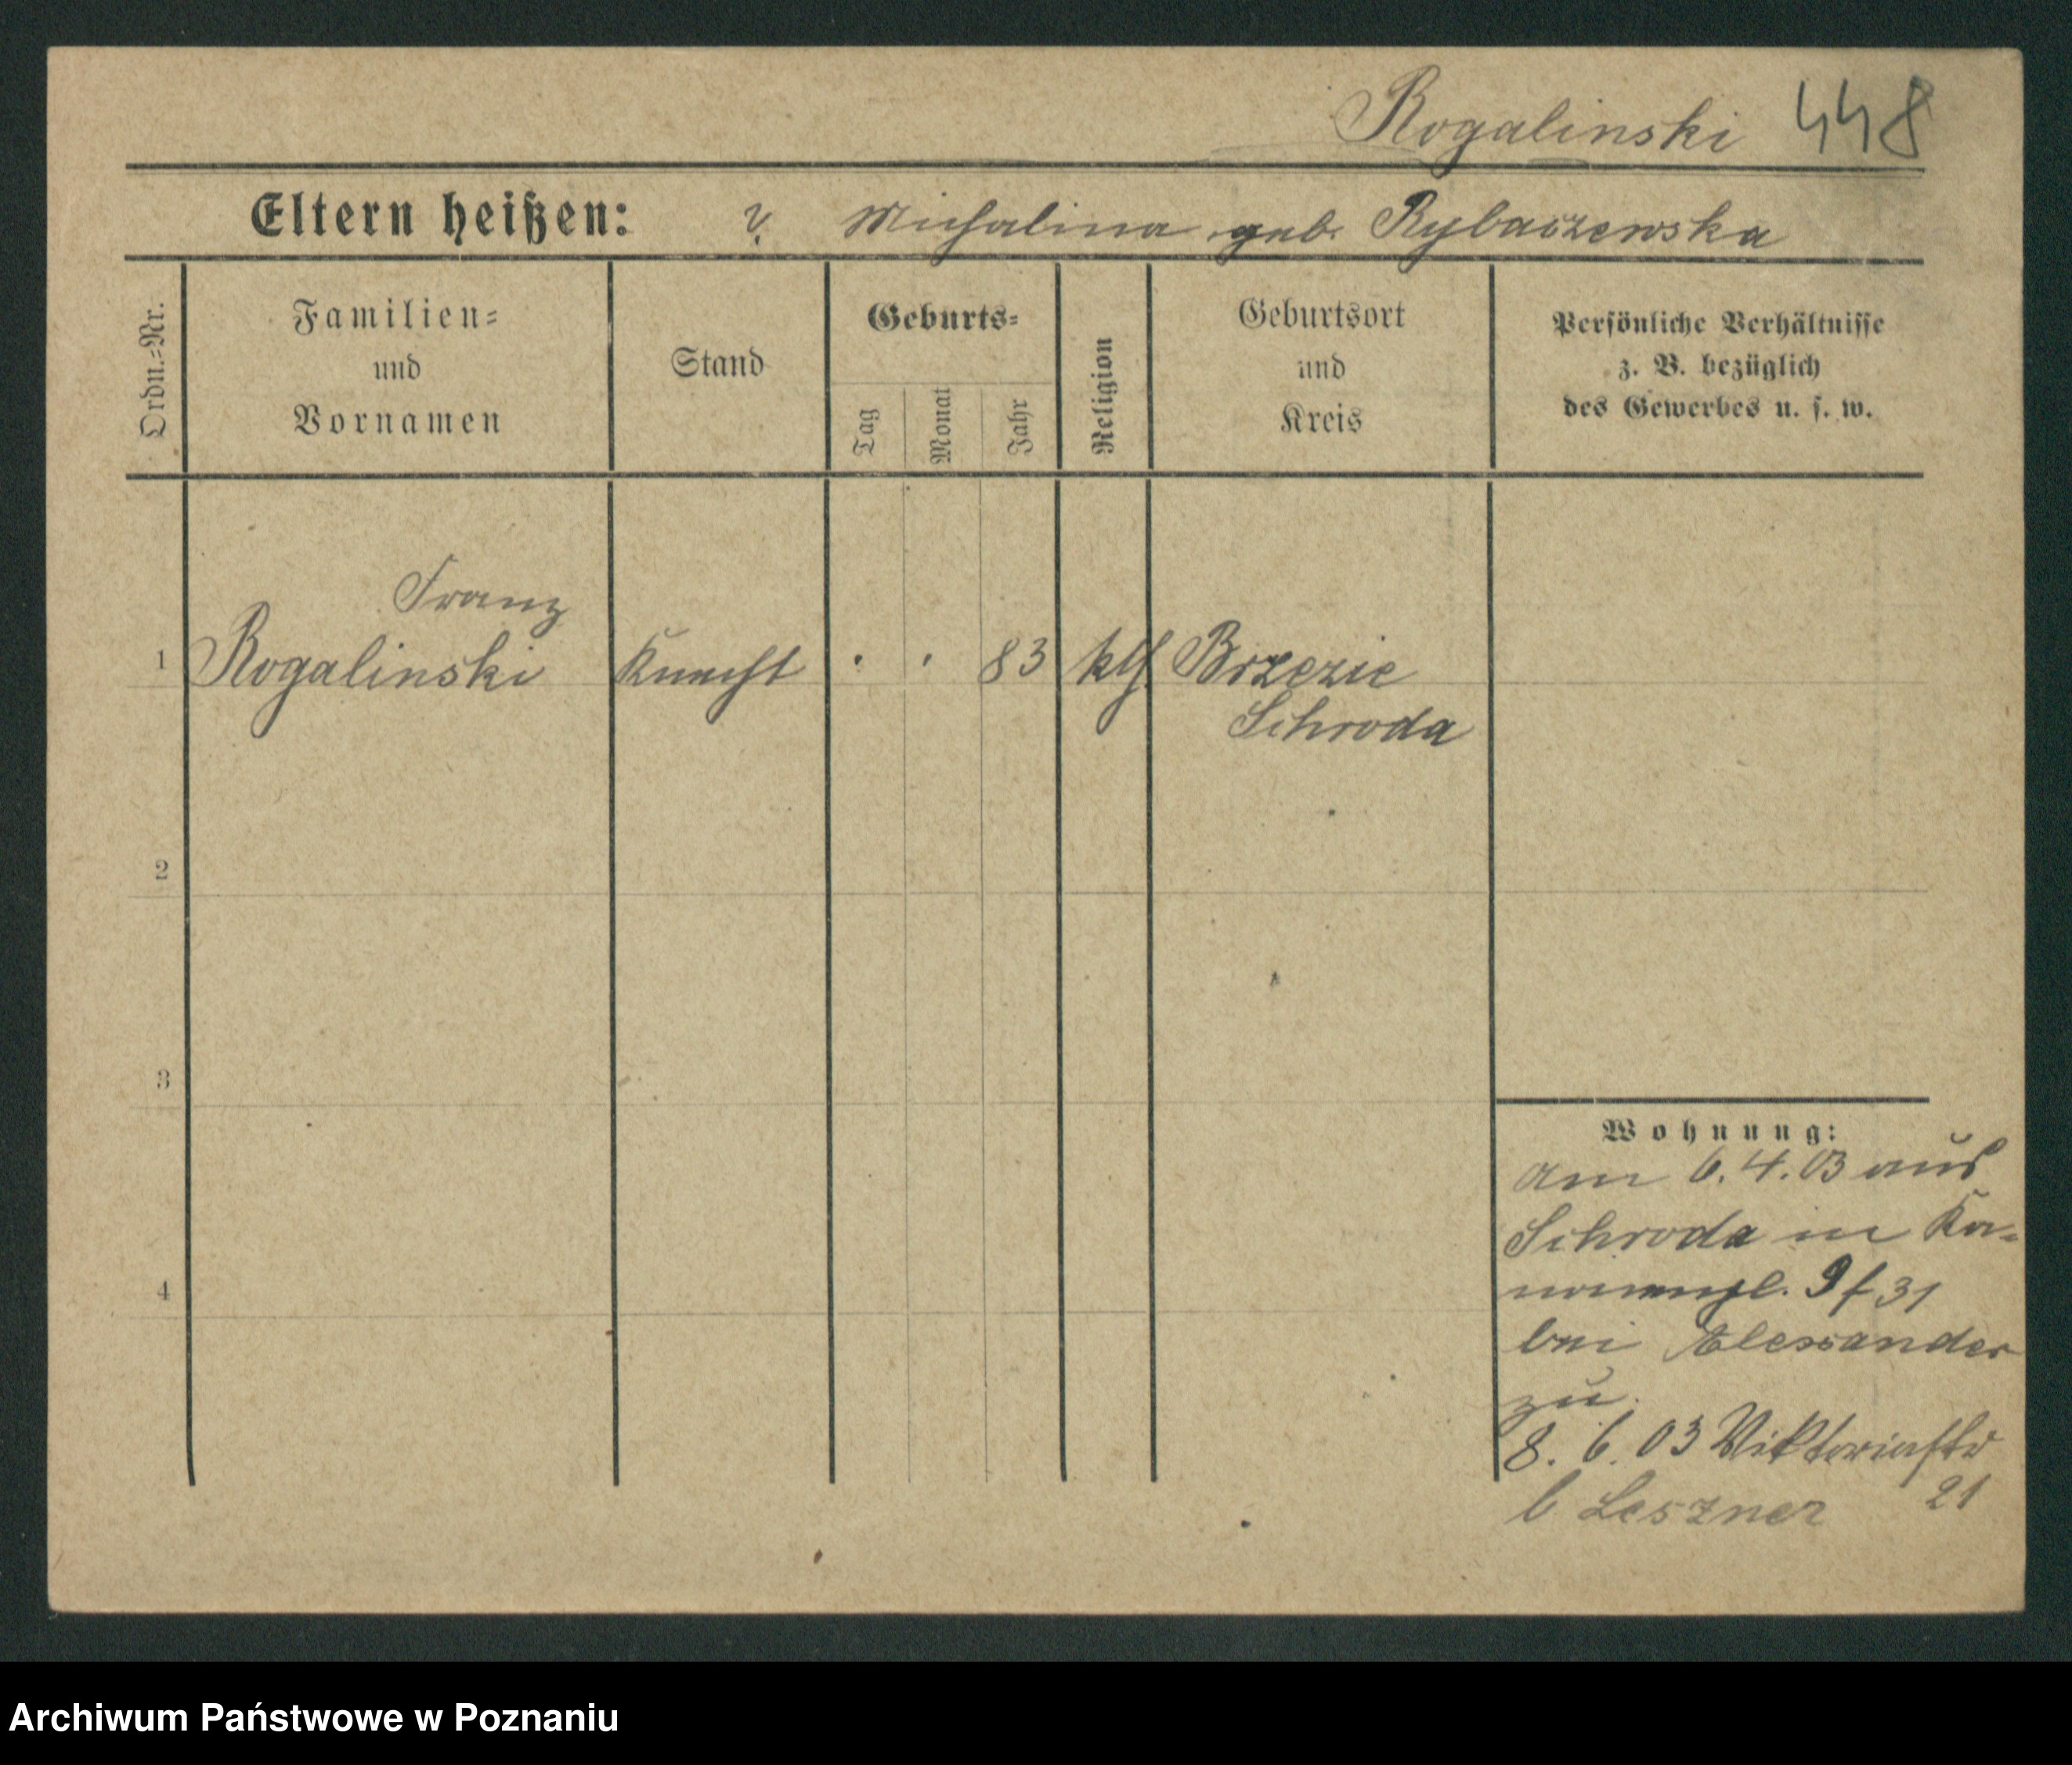 Rogalinski 448
Eltern heißen: ? Michalina geb. Rybaszewska
Ordn.-Nr.
Familien-
und
Vornamen
Stand
Geburts-
Tag
Monat
Jahr
Religion
Geburtsort
und
Kreis
Persönliche Verhältnisse
z. B. bezüglich
des Gewerbes u. s. w.
Franz
1 Rogalinski Knecht . . 83 kth. Brzezie
Schroda
2
3
4
Wohnung:
am 6.4.03 aus
Schroda in Ka-
nonenpl. 9 f 31
bei Alexander
zu.
8. 6. 03 Viktoriastr
21
b Leszner
Archiwum Państwowe w Poznaniu